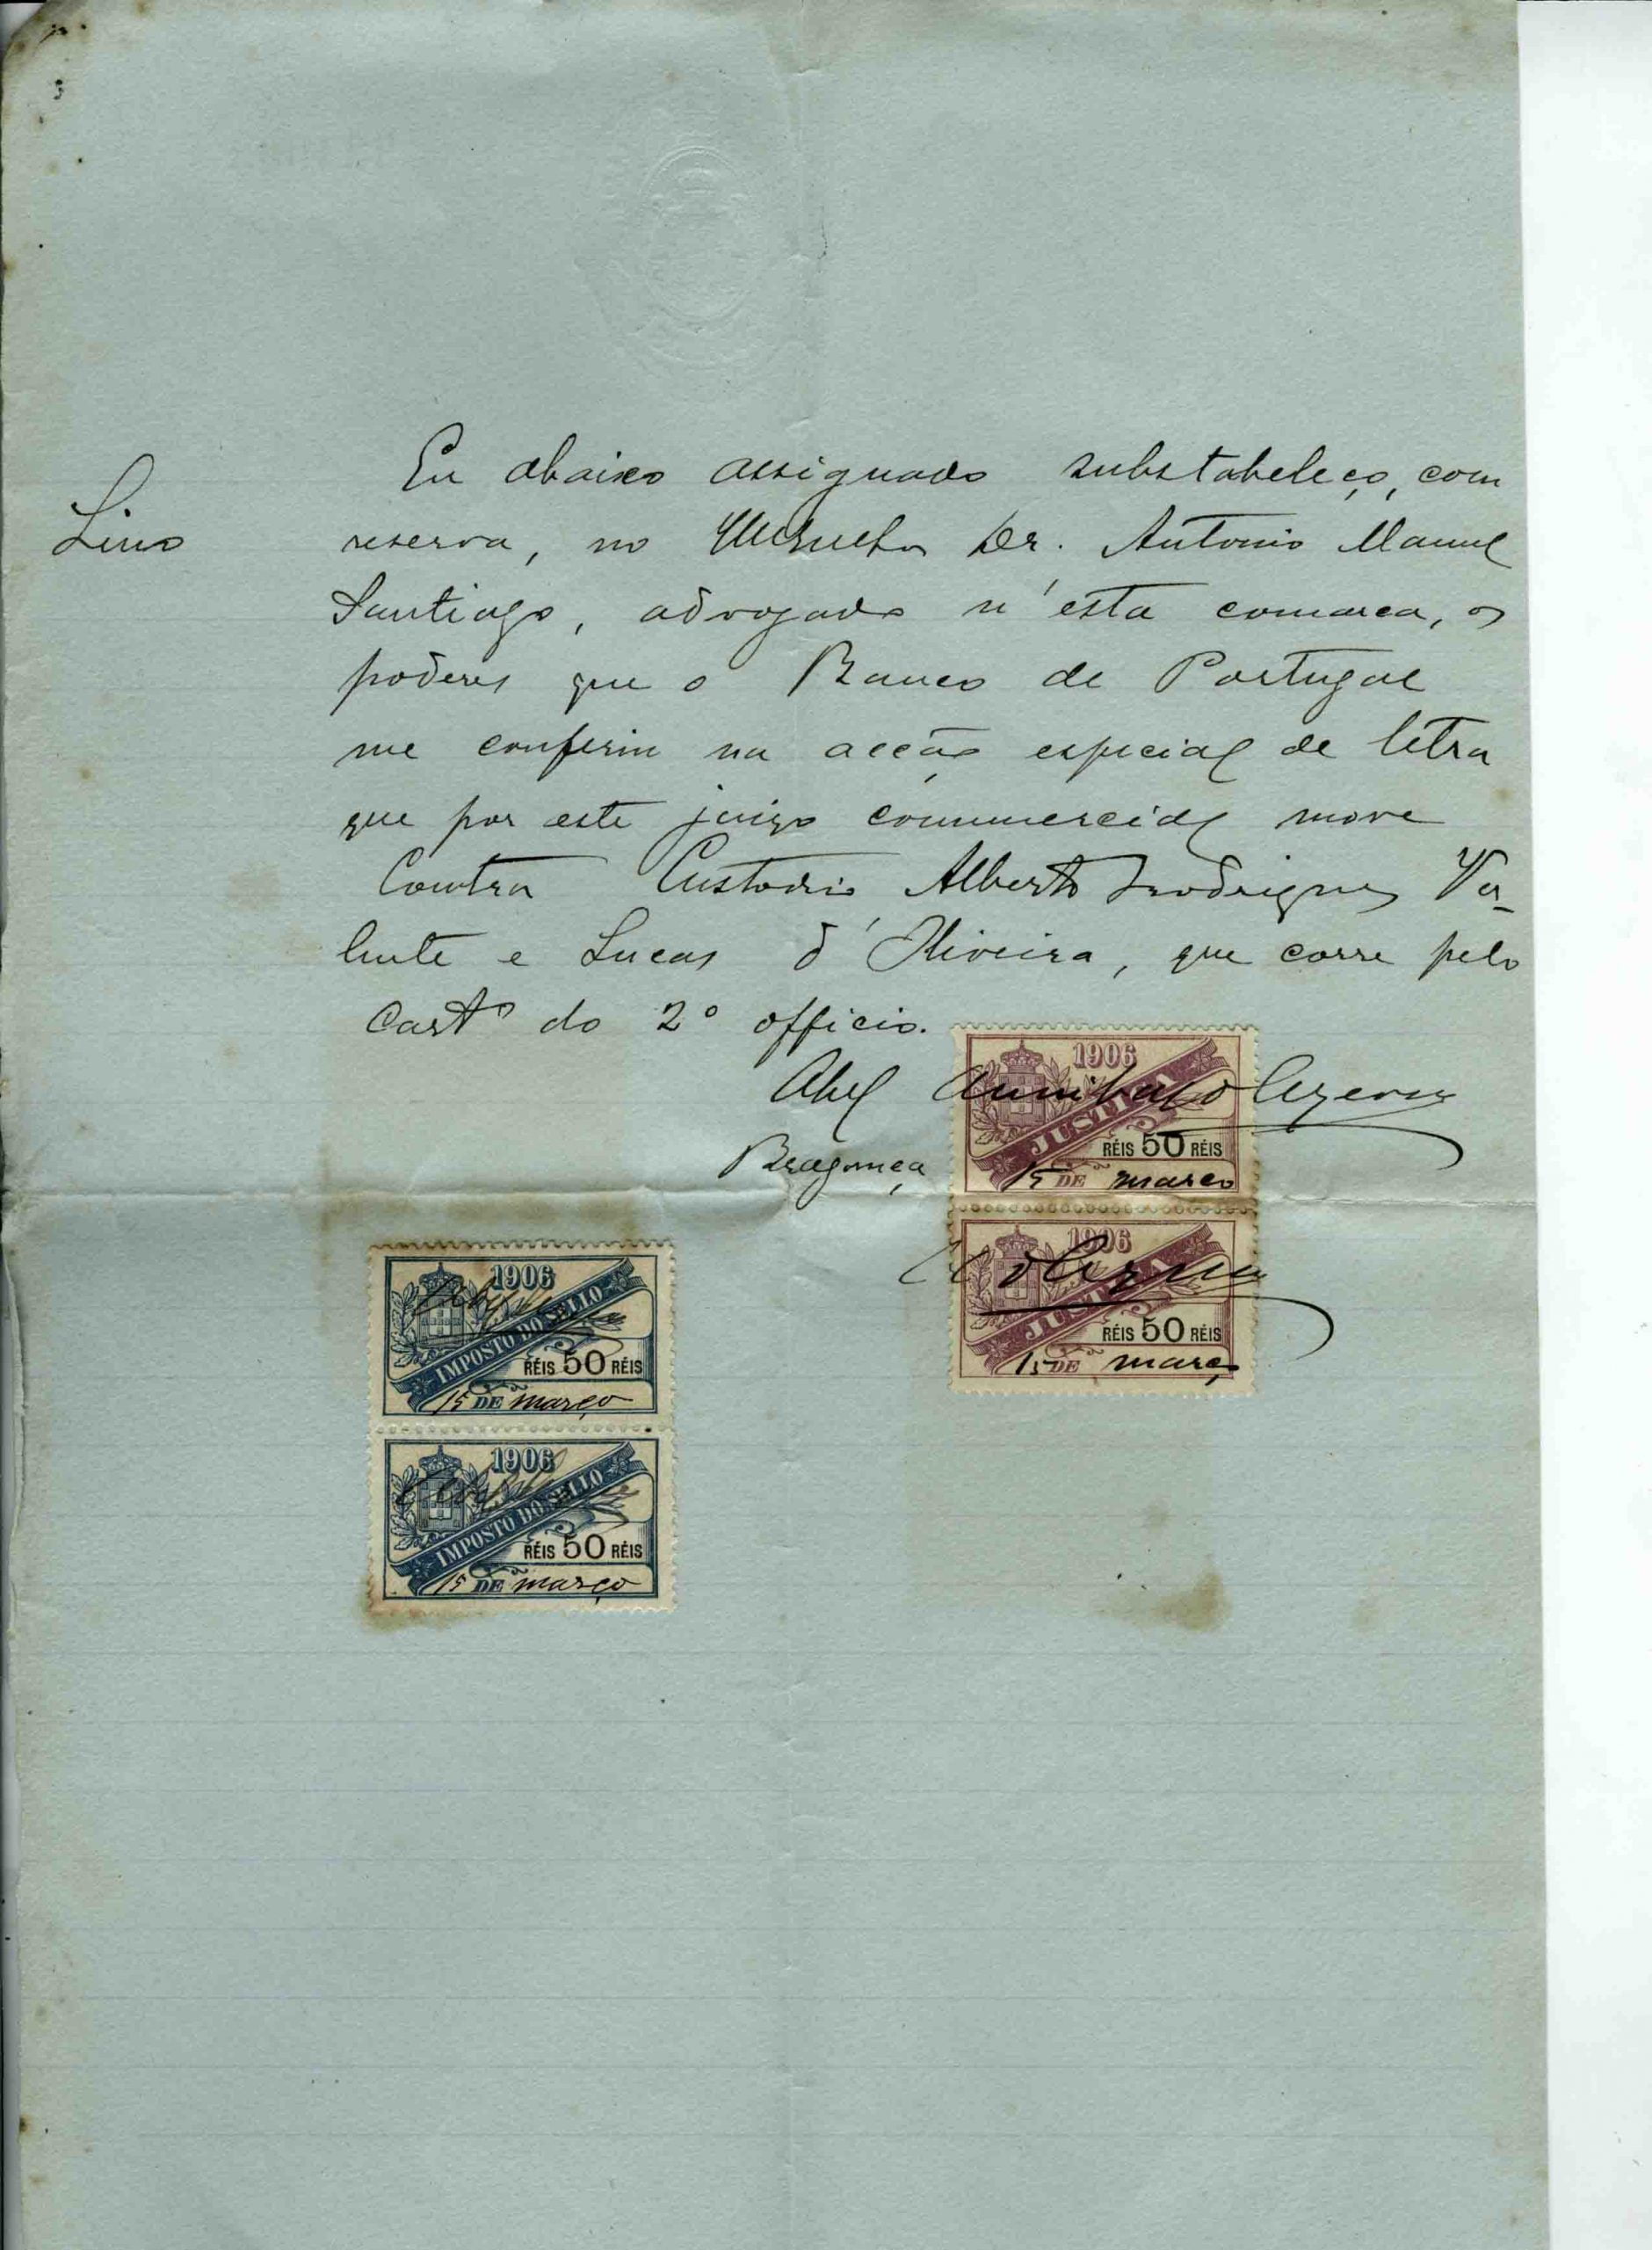 Lino
Eu abaixo assignado substabeleço, com
reserva, no Dr. Antonio Manuel
Santiago, advogado n'esta comarca, os
poderes que o Banco de Portugal
me conferiu na acção especial de letra
que por este juizo commercial move
Contra Custodio Alberto Rodrigues Va-
lente e Lucas d'Oliveira, que corre pelo
Cartº do 2º officio.
Abel Annibal d'Azevedo
Bragança
1906
JUSTIÇA
RÉIS 50 RÉIS
15 DE março
1906
JUSTIÇA
RÉIS 50 RÉIS
15 DE março
1906
IMPOSTO DO SELLO
RÉIS 50 RÉIS
15 DE março
1906
IMPOSTO DO SELLO
RÉIS 50 RÉIS
15 DE março